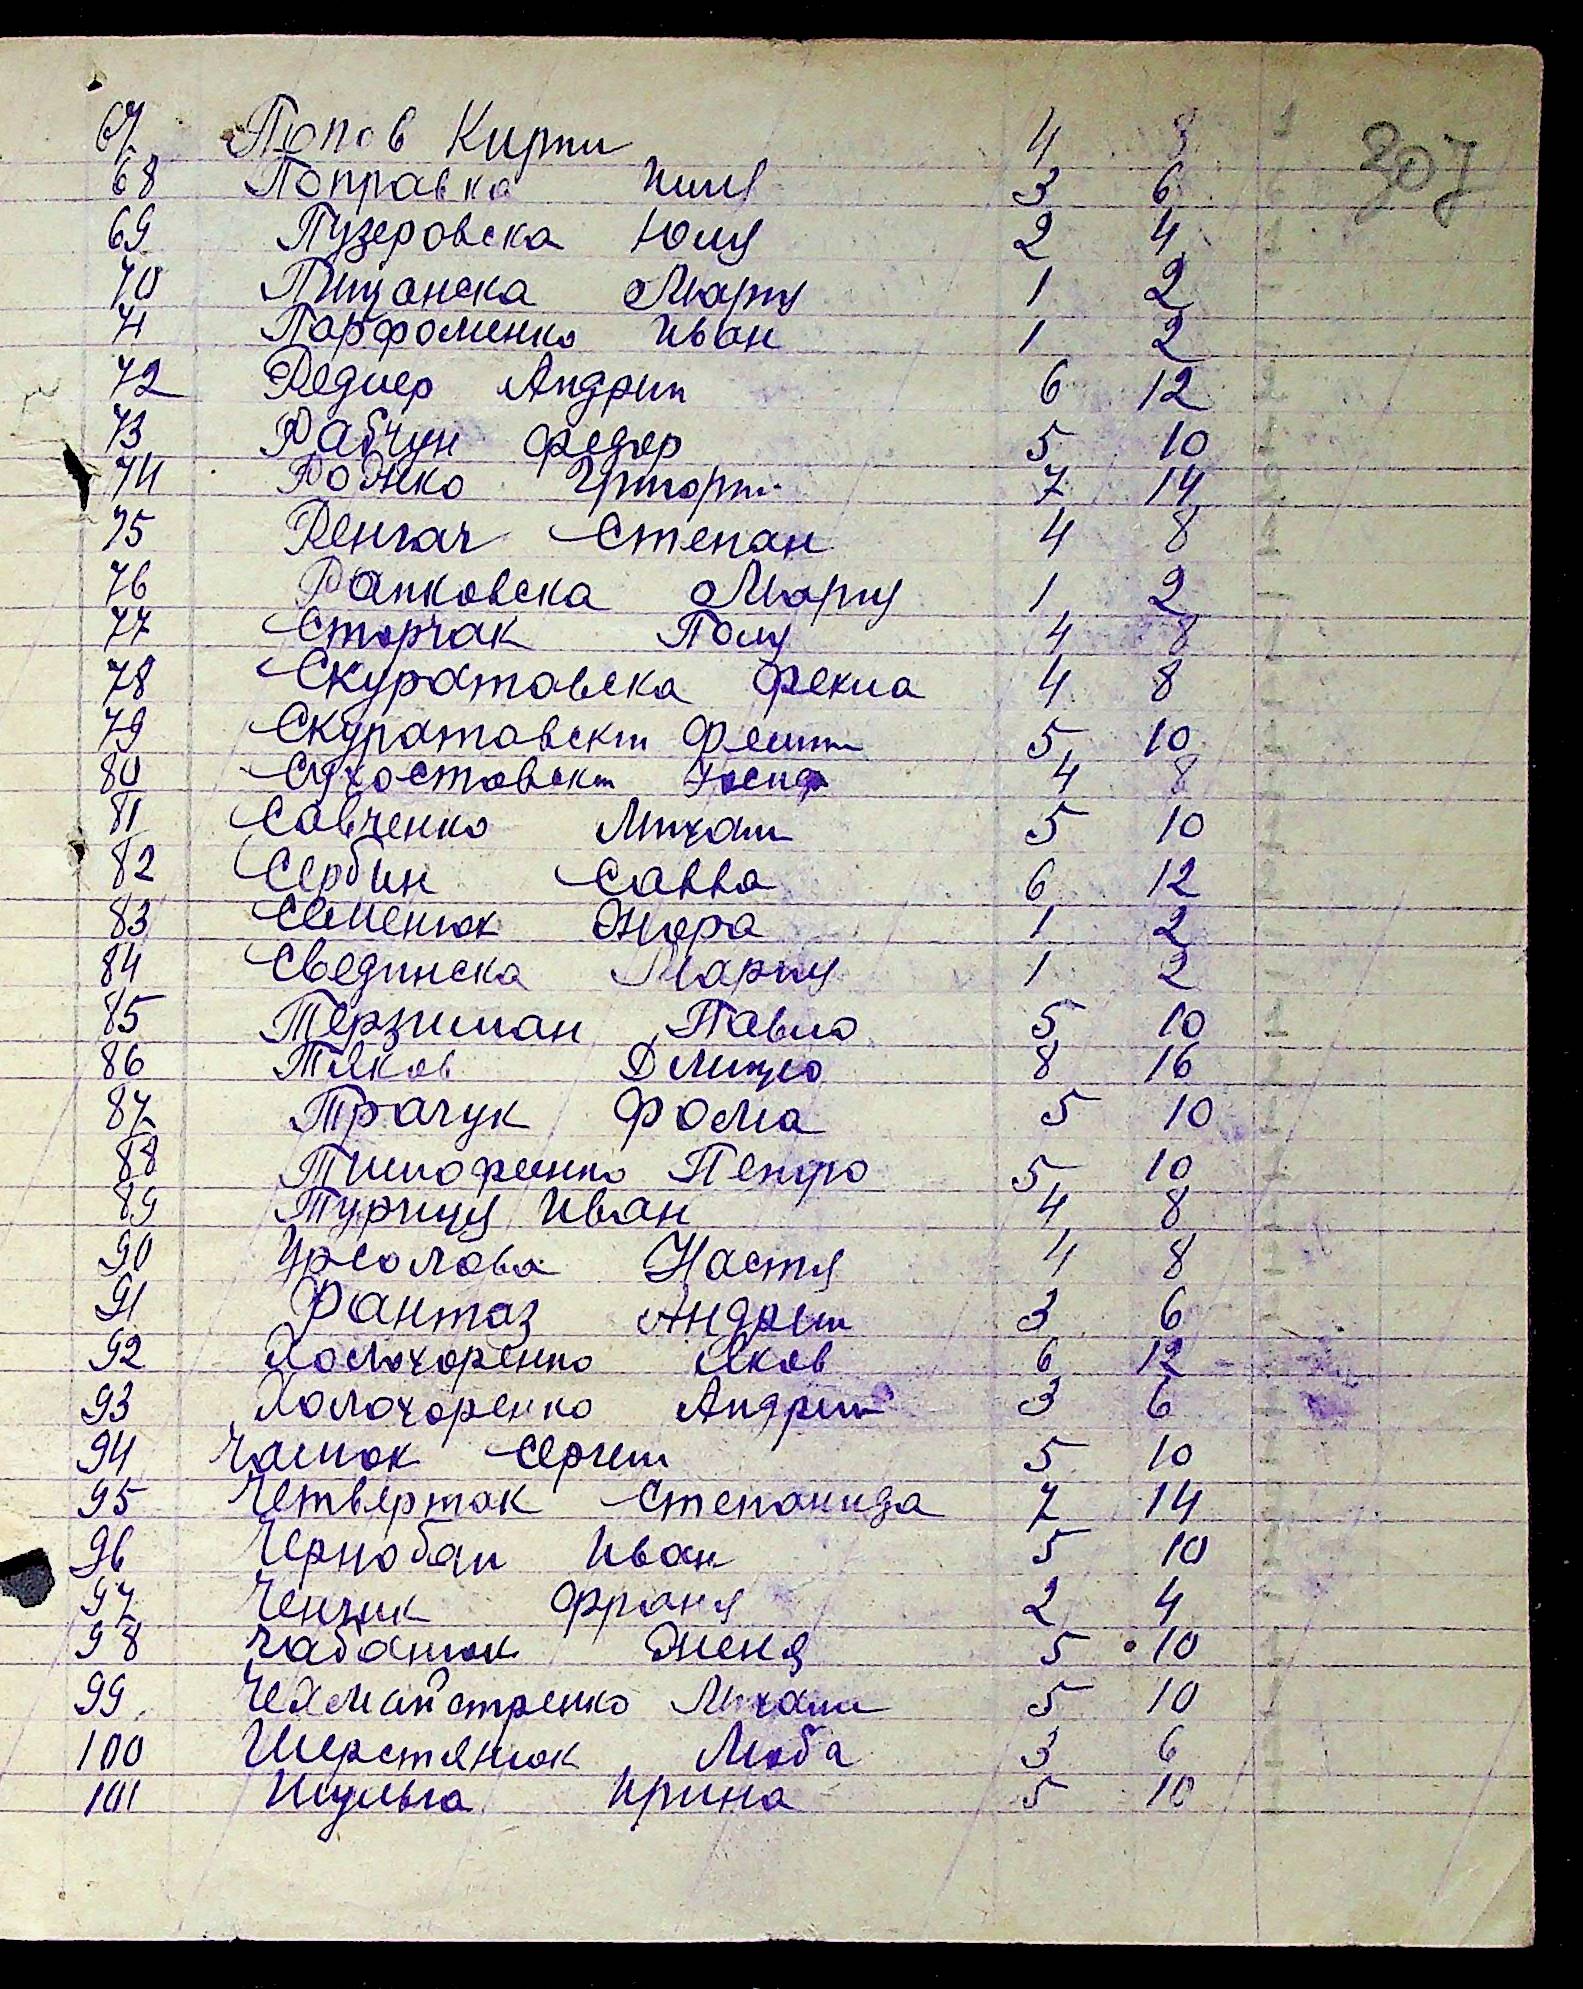 307
67 Попов Кирил 4 8
68 Поправка Илля 3 6
69 Пузеровска Юля 2 4
70 Пищанска Мария 1 2
71 Парфоменко Иван 1 2
72 Редлер Андрий 6 12
73 Рабчун Федор 5 10
74 Родзко Григорий 7 14
75 Ренгач Степан 4 8
76 Рапковска Мария 1 2
77 Сторчак Поля 4 8
78 Скуратовска Фекла 4 8
79 Скуратовский 5 10
80 Сухостовский Иосиф 4 8
81 Савченко Михаил 5 10
82 Сербин Савва 6 12
83 Семенюк Жора 1 2
84 Свединска Мария 1 2
85 Терзиман Павло 5 10
86 Дмитро 8 16
87 Трачук Фома 5 10
88 Тимофеенко Петро 5 10
89 Турица Иван 4 8
90 Урсолова Настя 4 8
91 Фантаз Андрей 3 6
92 Холохоренко Яков 6 12
93 Холохоренко Андрий 3 6
94 Чалюк Сергей 5 10
95 Четвертак Степанида 7 14
96 Чернобай Иван 5 10
97 Ченчик Франя 2 4
98 Чабанюк Женя 5 10
99 Чехмайстренко Михаил 5 10
100 Шерстянюк Люба 3 6
101 Шульга Ирина 5 10